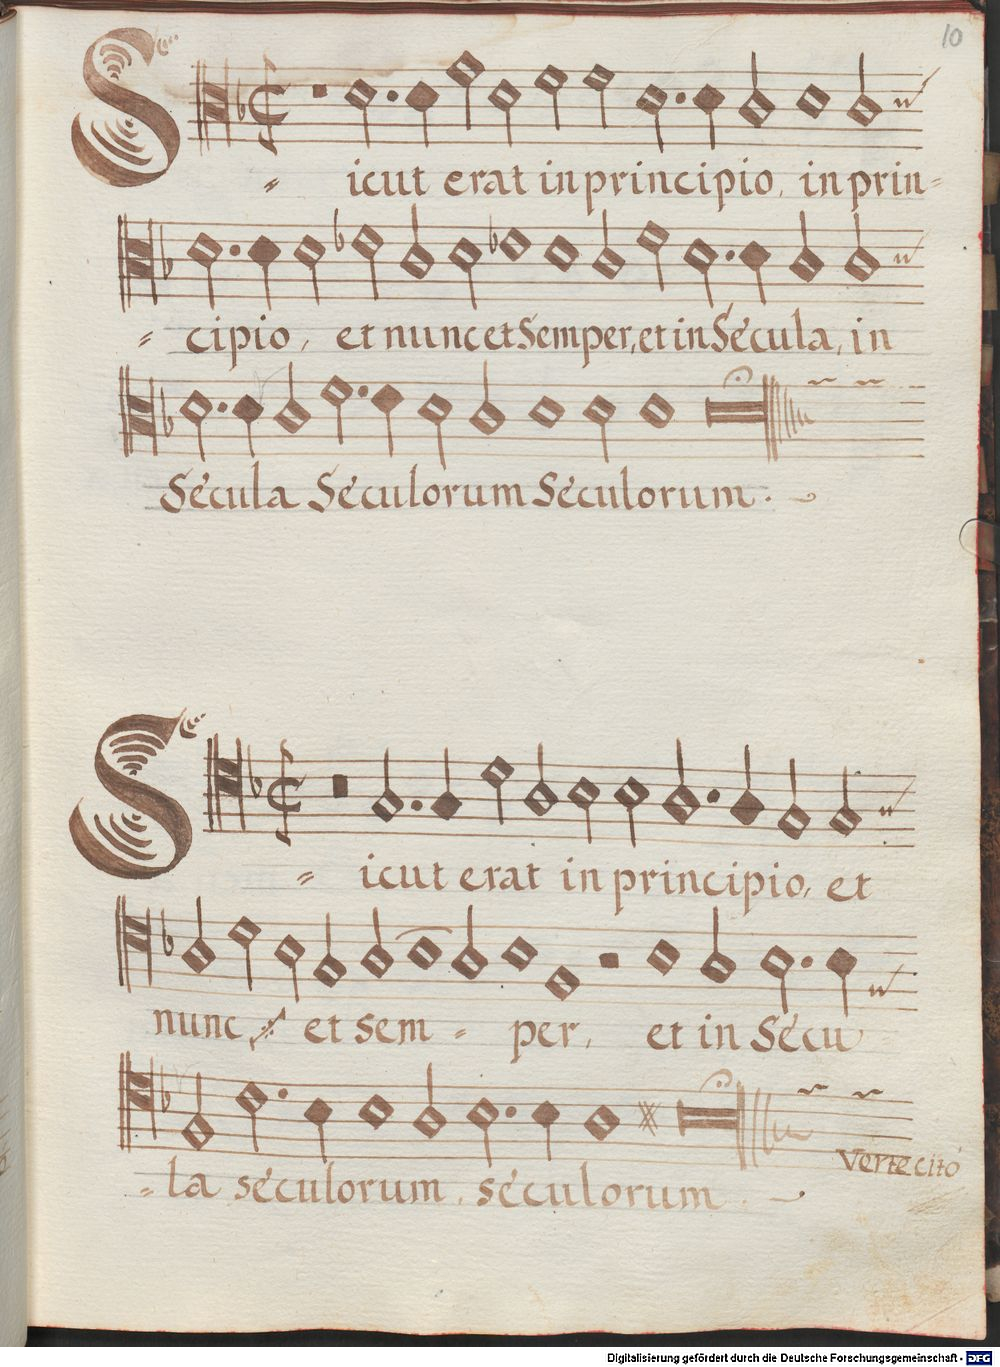 10
Sicut erat in principio, in prin=
=cipio, et nunc et Semper, et in Sécula, in
Sécula Séculorum Séculorum.
Sicut erat in principio, et
nunc, et sem - per, et in Sécu
=la séculorum. séculorum.
Verte citó
Digitalisierung gefördert durch die Deutsche Forschungsgemeinschaft - DFG